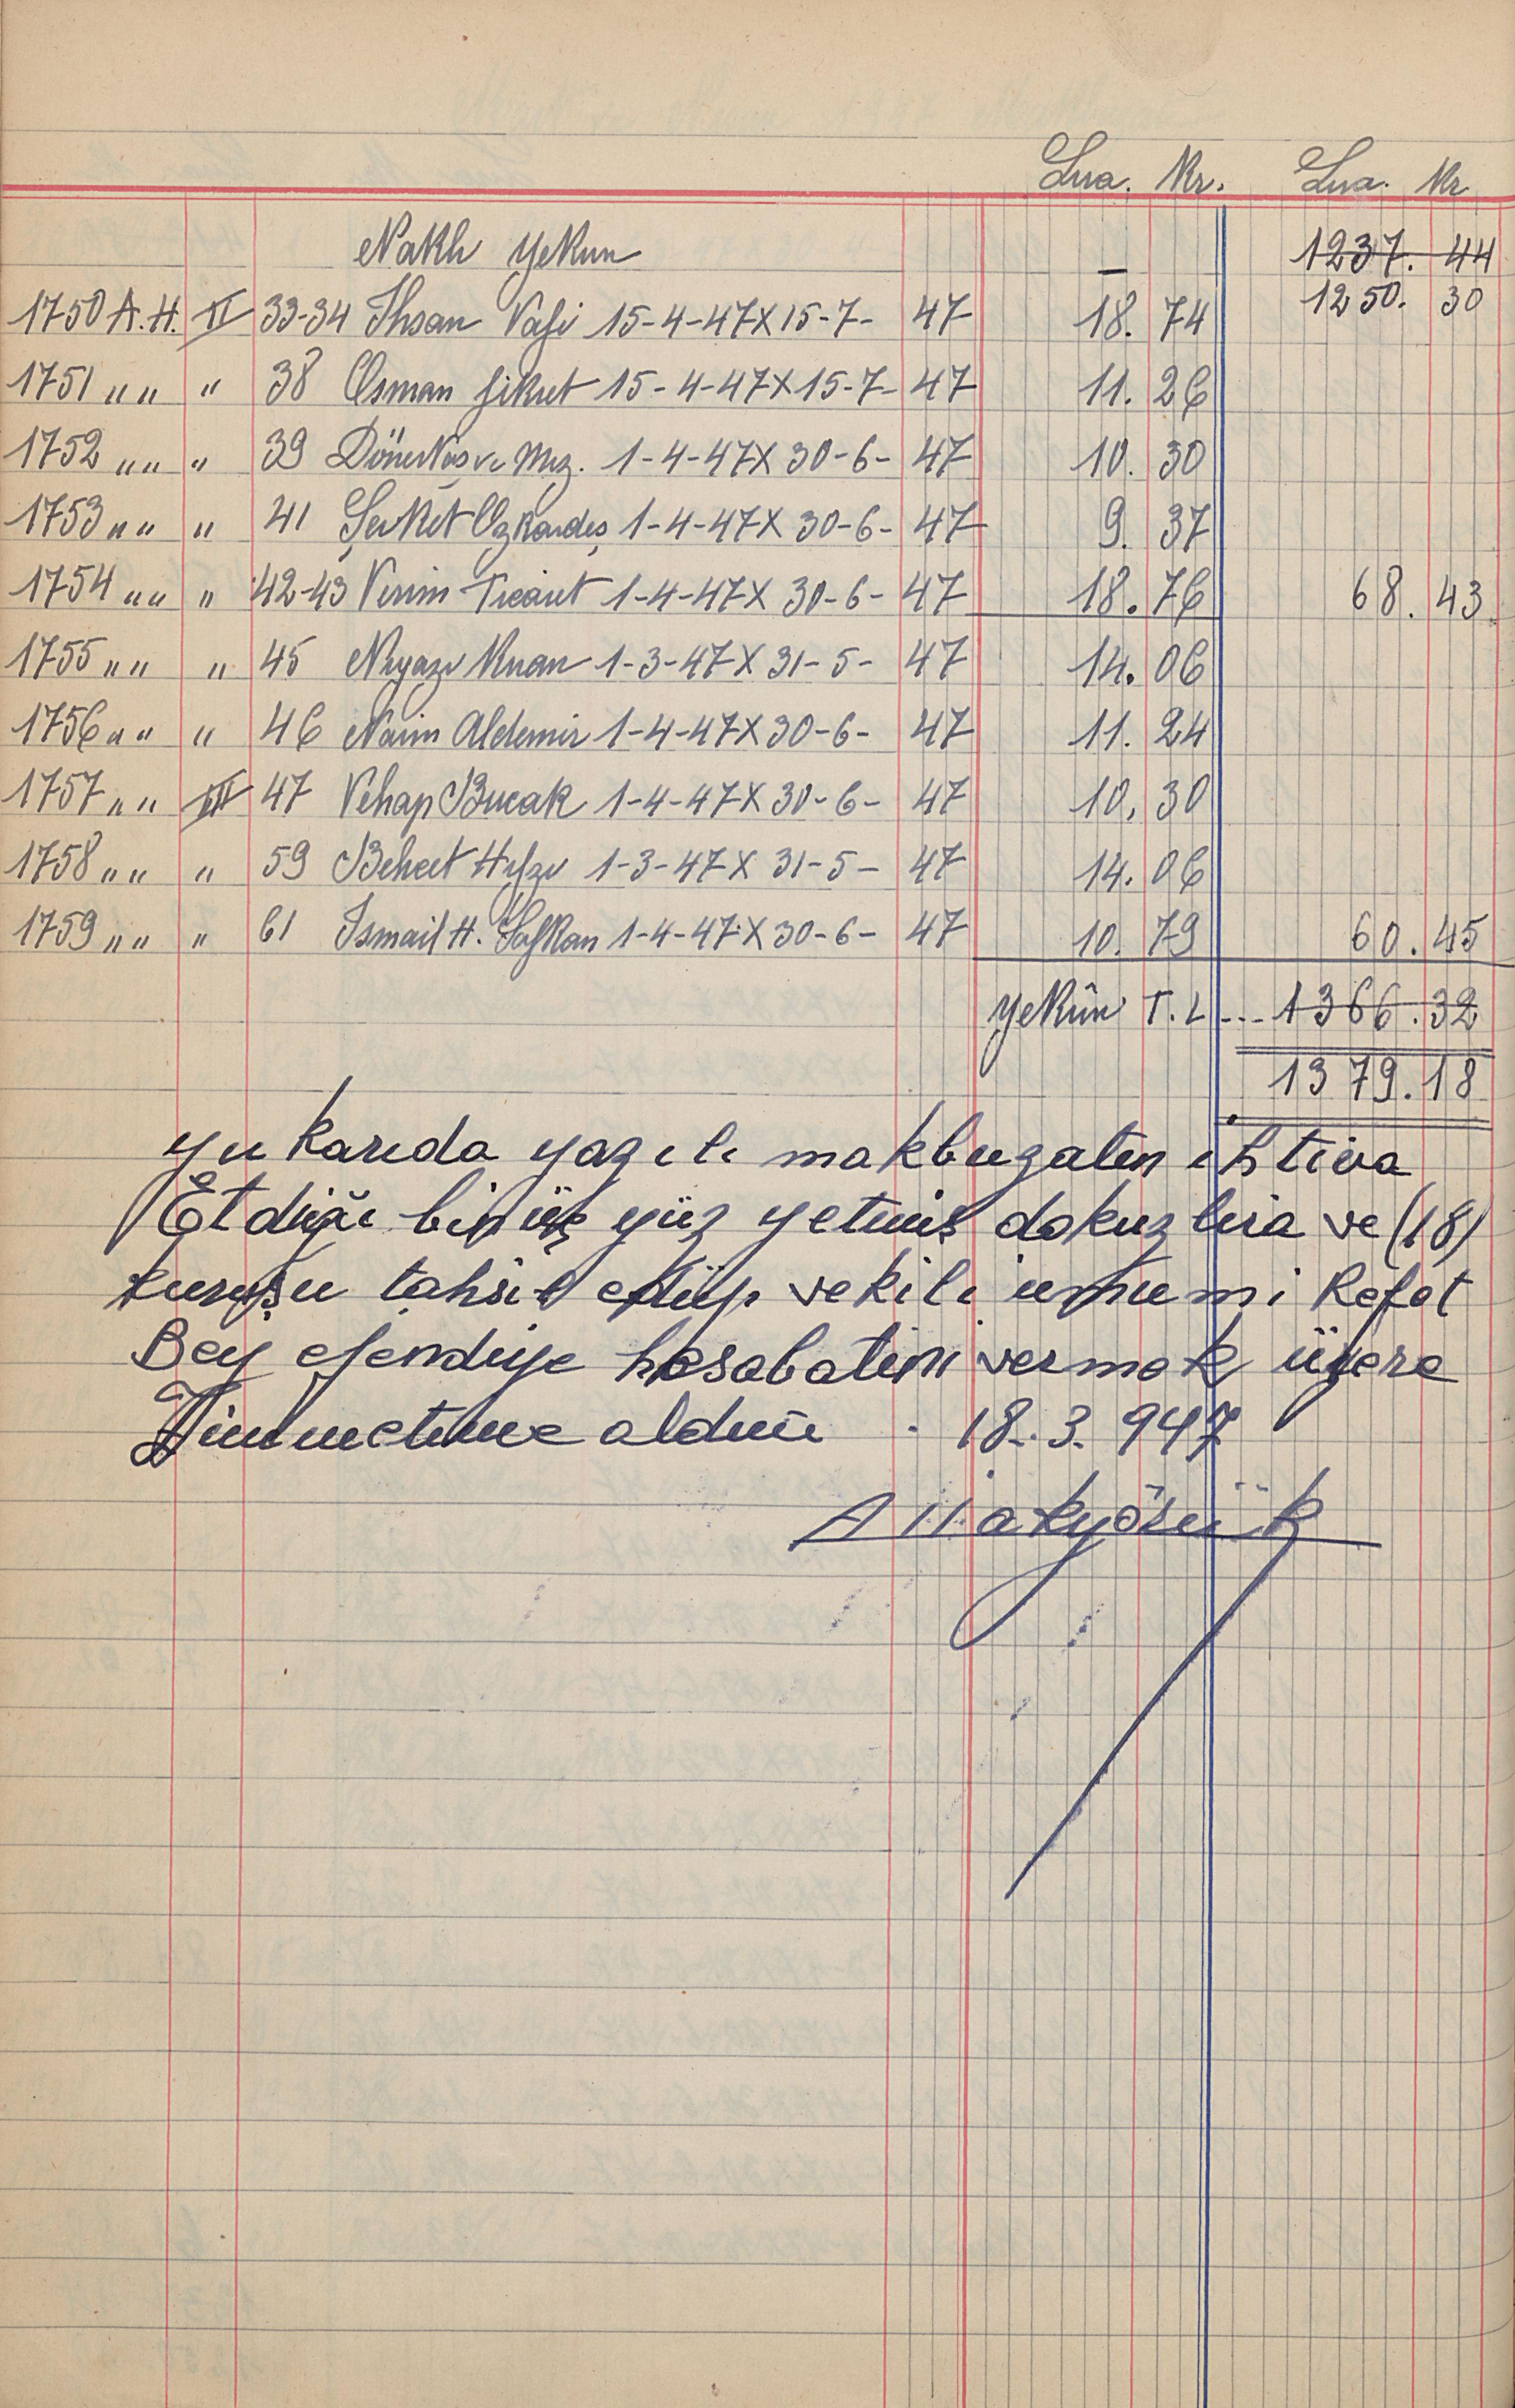 Lira. Kr. Lira. Kr
Nakli yekun — 1237. 44
1250. 30
1750 A.H. II 33-34 Ihsan Vafi 15-4-47X15-7- 47 18. 74
1751 " " " 38 Osman fikret 15-4-47X15-7- 47 11. 26
1752 " " " 39 1-4-47X 30-6- 47 10. 30
1753 " " " 41 Şevket Özkardeş 1-4-47X 30-6- 47 9. 37
1754 " " " 42-43 Verim Ticaret 1-4-47X 30-6- 47 18. 76 68. 43
1755 " " " 45 Niyazi 1-3-47X 31-5- 47 14. 06
1756 " " " 46 Naim Aldemir 1-4-47X 30-6- 47 11. 24
1757 " " III 47 Vehap Bucak 1-4-47X 30-6- 47 10. 30
1758 " " " 59 Behcet Hıfzı 1-3-47X 31-5- 47 14. 06
1759 " " " 61 Ismail H. 1-4-47X 30-6- 47 10. 79 60. 45
yekûn T.L... 1366. 32
1379. 18
yukarıda yazılı makbuzatın ihtiva
Etdiği bin üç yüz yetmiş dokuz lira ve (18)
kuruşu tahsil edüp vekili umumi Refet
Bey efendiye hesabatını vermek üzere
Zimmetime aldım . 18.3.947